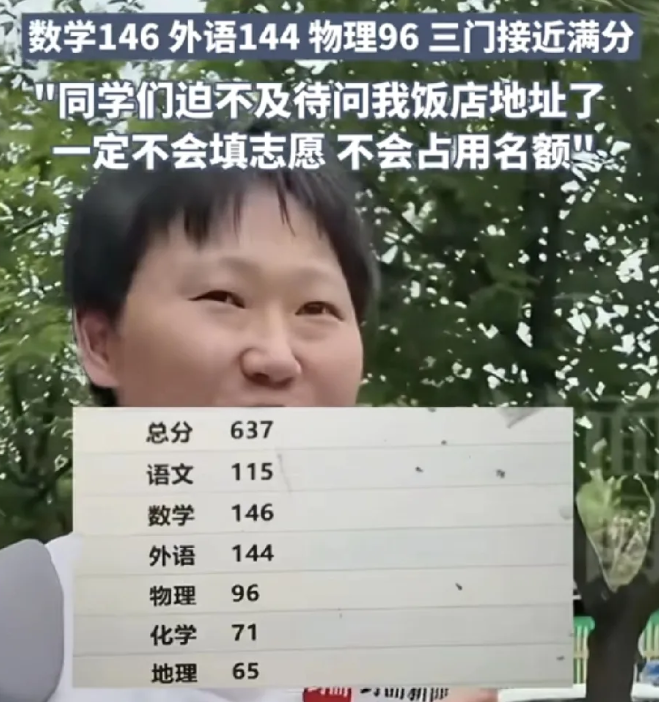 数学146 外语144 物理96 三门接近满分
"同学们迫不及待问我饭店地址了
一定不会填志愿 不会占用名额"
总分 637
语文 115
数学 146
外语 144
物理 96
化学 71
地理 65